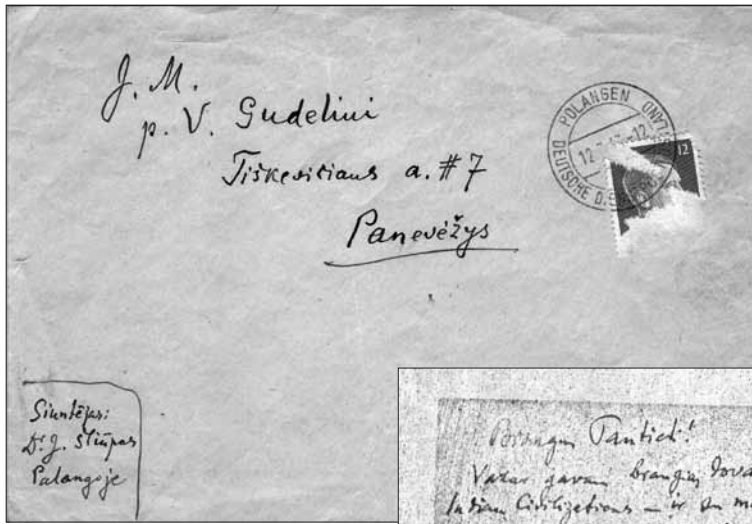 J. M.
p. V. Gudeliui
Tiškevičiaus a. #7
Panevėžys
POLANGEN
DEUTSCHE
12
Siuntėjas:
Dr J. Šliūpas
Palangoje
Brangus Tautieti!
Vakar gavau brangią dova
Indian Civilizations – ir su m